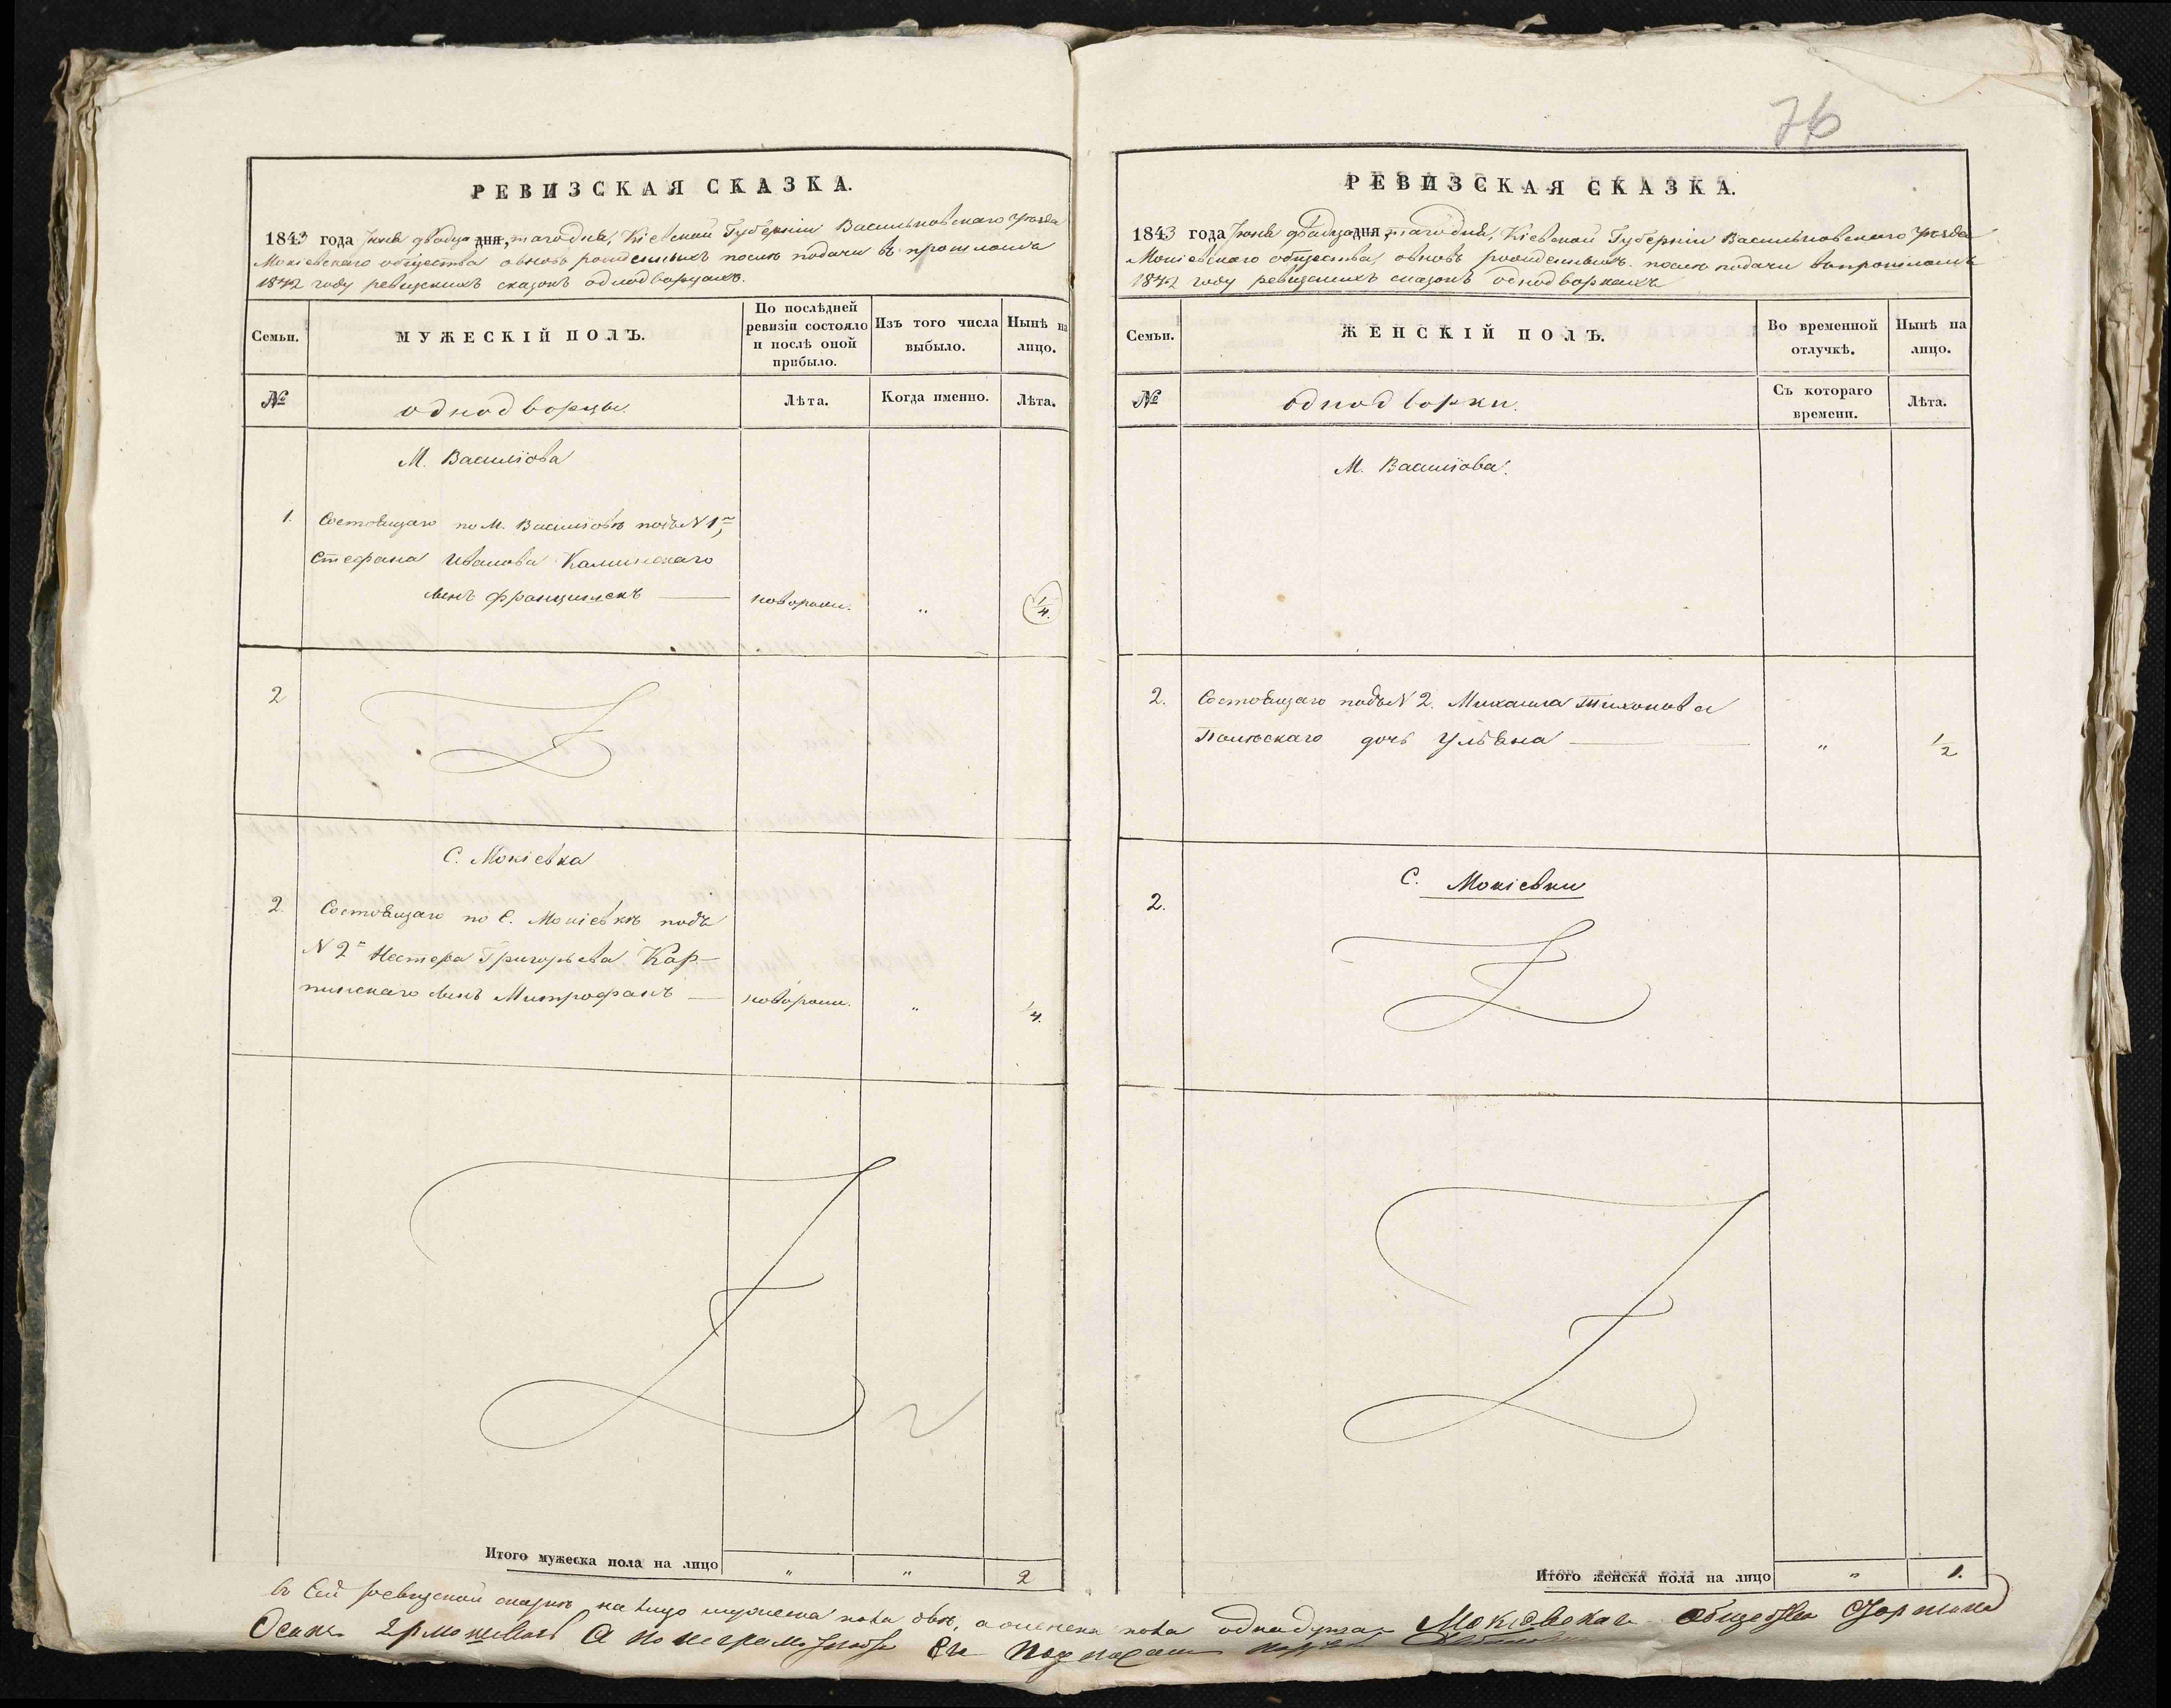 76
РЕВИЗСКАЯ СКАЗКА.
1843 года Іюня двадца дня, таго дня, Кіевской Губерніи Васильковскаго уѣзда
Мокіевскаго общества о вновь рожденныхъ послѣ подачи въ прошломъ
1842 году ревизскихъ сказокъ однодворцахъ.
Семьи.
МУЖЕСКІЙ ПОЛЪ.
По послѣдней ревизіи состояло и послѣ оной прибыло.
Изъ того числа выбыло.
Нынѣ на лицо.
№
однодворцы.
Лѣта.
Когда именно.
Лѣта.
М. Василіова
1. Состоящаго по М. Василіовѣ подъ N 1м,
Стефана Иванова Калинскаго
сынъ Францишекъ —новорожд. „ 1/4.
2
С. Мокіевка
2. Состоящаго по С. Мокіевкѣ подъ
N 2м Нестера Григорьева Кар-
пинскаго сынъ Митрофанъ — новорожд. „ 1/4.
Итого мужеска пола на лицо „ „ 2
РЕВИЗСКАЯ СКАЗКА.
1843 года Іюня двадца дня, таго дня, Кіевской Губерніи Васильковскаго уѣзда
Мокіевскаго общества, о вновь рожденныхъ послѣ подачи въ прошломъ
1842 году ревизскихъ сказокъ однодворкахъ
Семьи.
ЖЕНСКІЙ ПОЛЪ.
Во временной отлучкѣ.
Нынѣ на лицо.
№
однодворки.
Съ котораго времени.
Лѣта.
М. Василіова.
2. Состоящаго подъ N 2. Михаила Тихонова
Польскаго дочь Ульяна — „ 1/2
С. Мокіевки
2.
Итого женска пола на лицо „ 1.
въ сей ревизской сказкѣ на лицо мужеска пола двѣ, а женска пола одна душа. Мокіевскаго общества